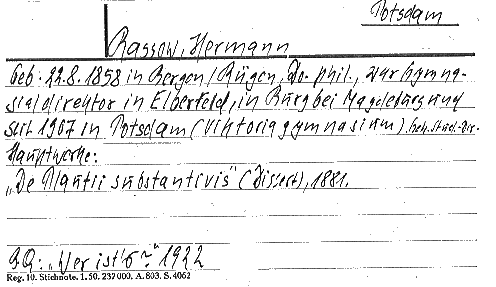 Potsdam
Rassow, Hermann
Geb. 22.8.1858 in Bergen/Rügen, Dr. phil., war Gymna-
sialdirektor in Elberfeld, in Burg bei Magdeburg und
seit 1907 in Potsdam (Viktoriagymnasium). Geh. Stud.-Dir.
Hauptwerke:
„De Plauti substantivis" (Dissert), 1881.
BQ: „Wer ist's" 1922
Reg. 10. Stichnote. 1. 50. 237 000. A. 803. S. 4062